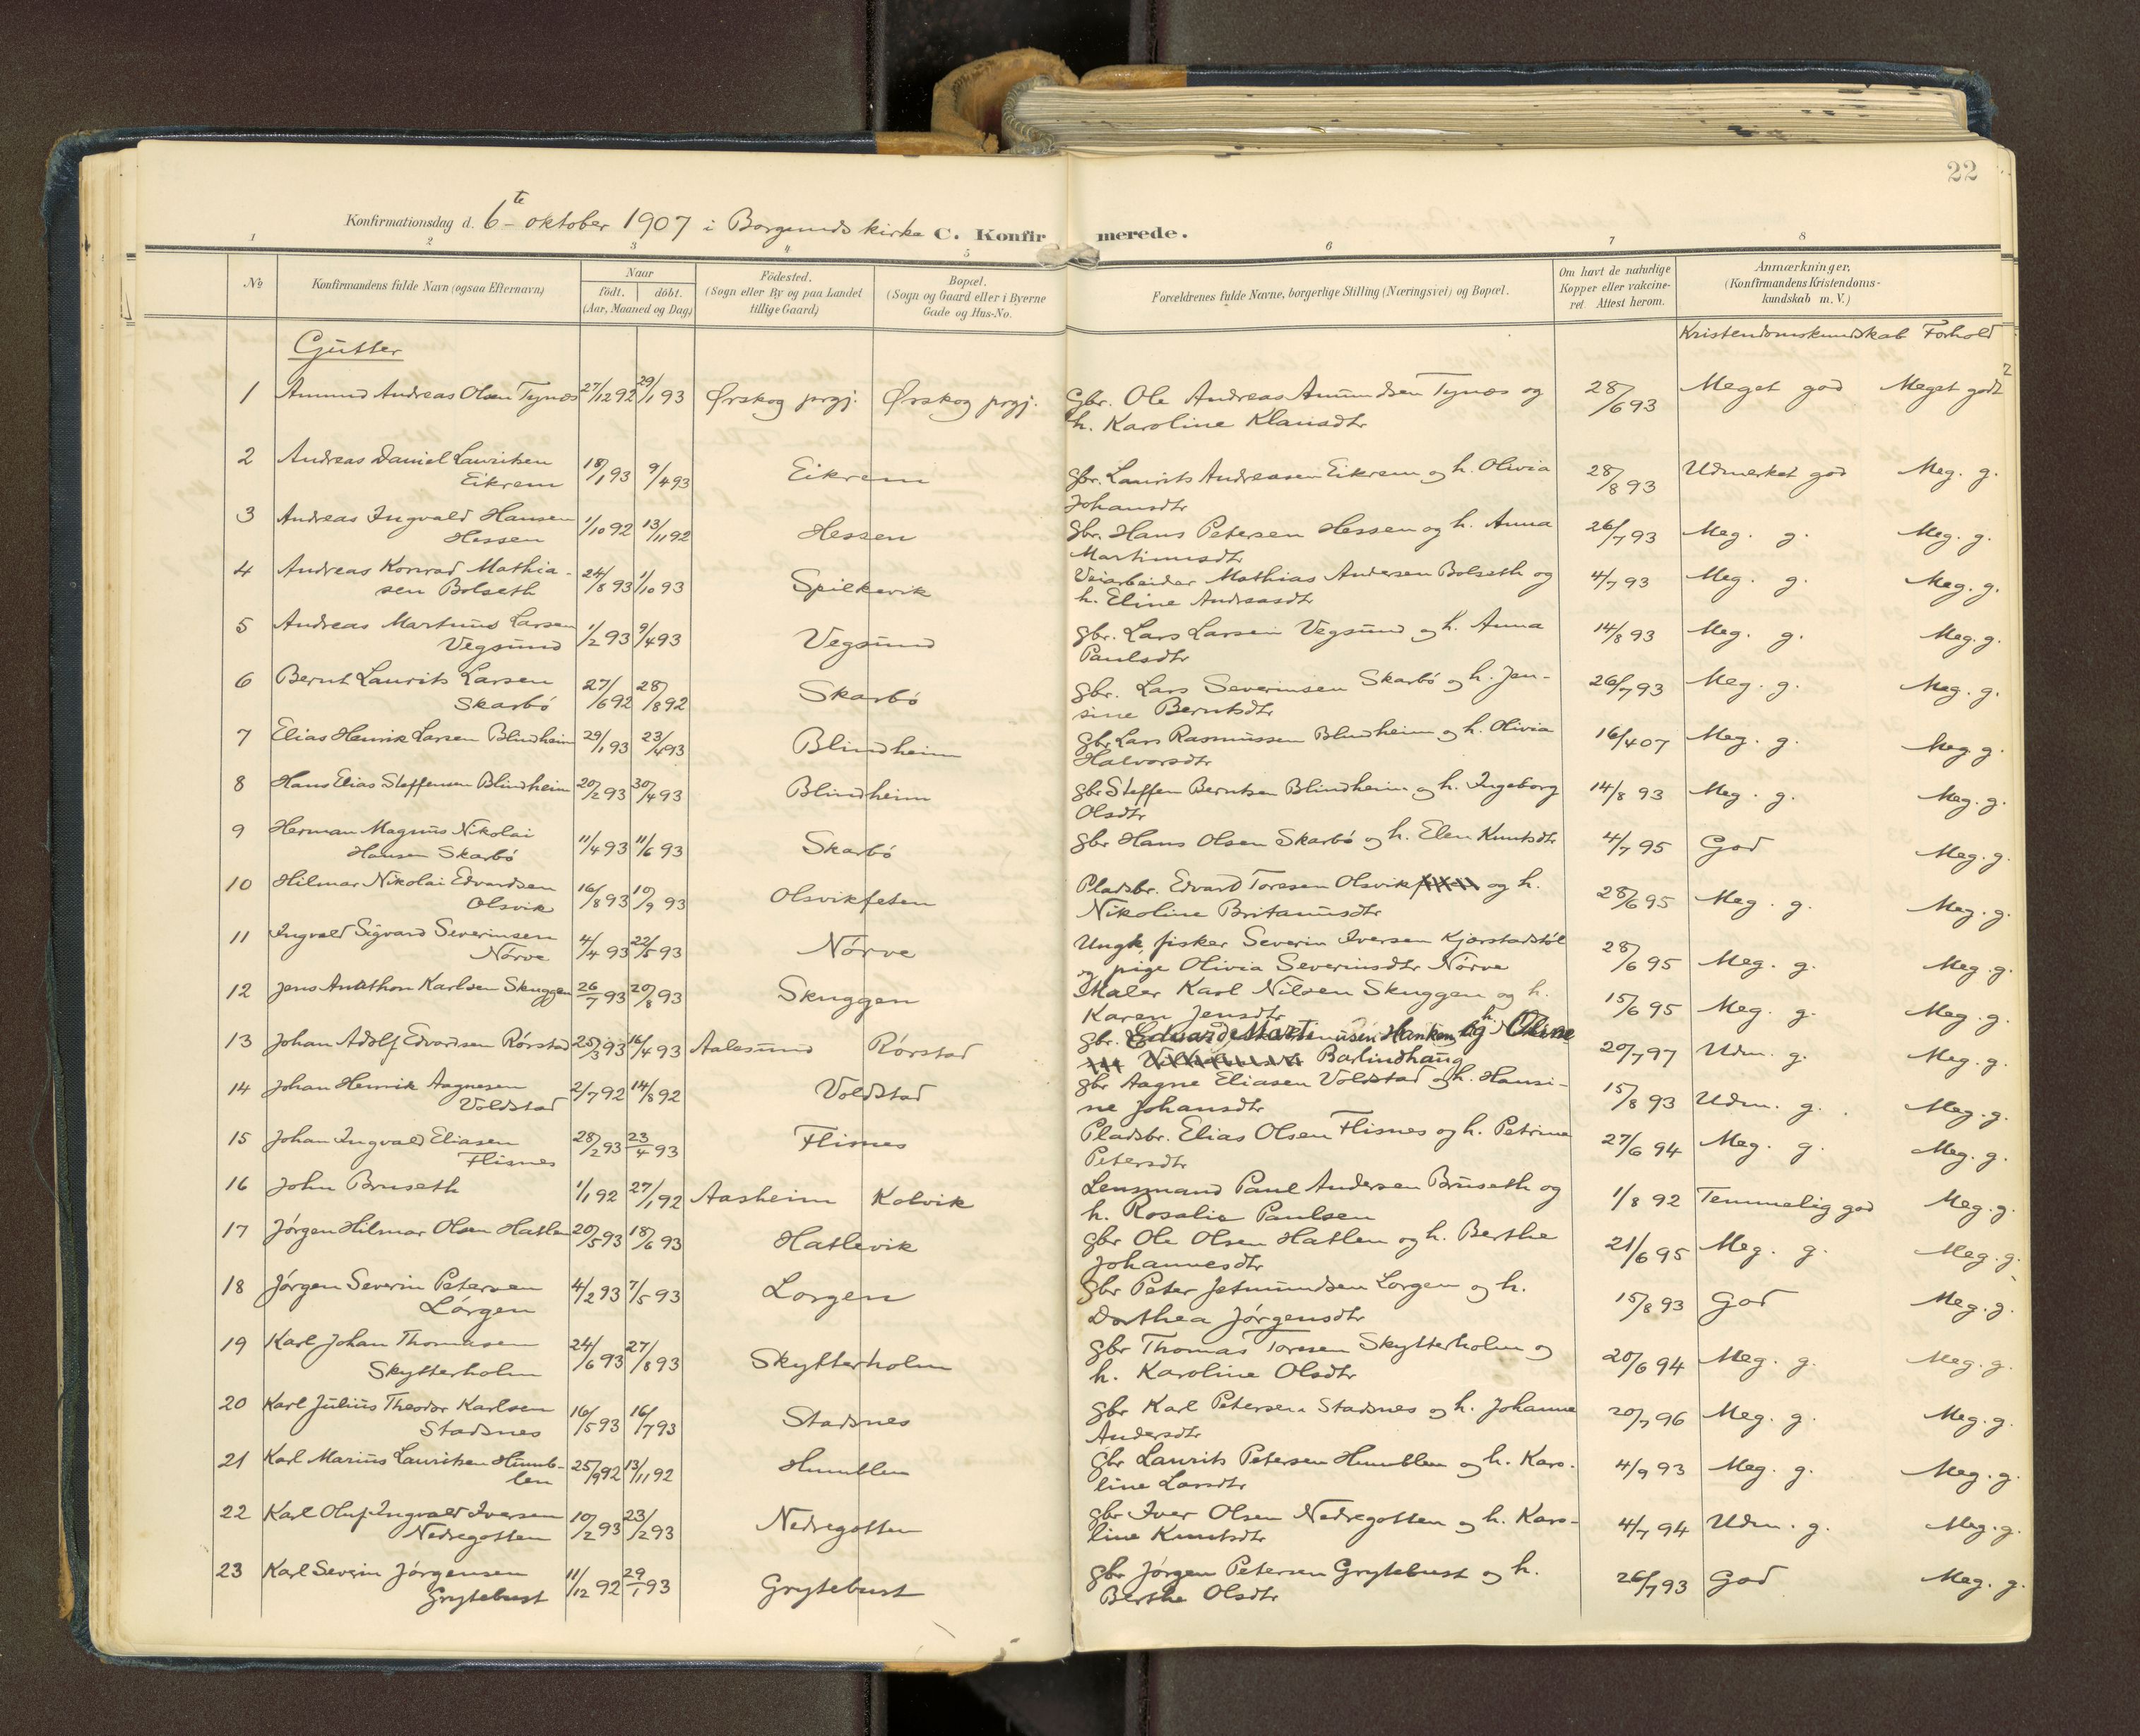 22
Konfirmationsdag d. 6te oktober 1907 i Borgunds kirke C. Konfirmerede.
1 2 3 4 5 6 7 8
No
Konfirmandens fulde Navn (ogsaa Efternavn)
Naar
födt. döbt.
(Aar, Maaned og Dag)
Födested.
(Sogn eller By og paa Landet
tillige Gaard)
Bopæl.
(Sogn og Gaard eller i Byerne
Gade og Hus-No.
Forældrenes fulde Navne, borgerlige Stilling (Næringsvei) og Bopæl.
Om havt de naturlige
Kopper eller vakcine-
ret Attest herom.
Anmærkninger,
(Konfirmandens Kristendoms-
kundskab m. V.)
Kristendomskundskab Forhold
Gutter
1 Amund Andreas Olsen Tynes 27/12 92 29/1 93 Ørskog prgj. Ørskog prgj. Gbr. Ole Andreas Amundsen Tynes og 28/6 93 Meget god Meget godt
h. Karoline Klausdtr
2 Andreas Daniel Lauritsen
Eikrem 18/1 93 9/4 93 Eikrem gbr. Laurits Andreasen Eikrem og h. Olivia 28/8 93 Udmerket god Meg. g.
Johansdtr
3 Andreas Ingvald Hansen
Hessen 1/10 92 13/11 92 Hessen gbr. Hans Petersen Hessen og h. Anna 26/7 93 Meg. g. Meg. g.
Martinusdtr
4 Andreas Konrad Mathia-
sen Bolseth 24/8 93 1/10 93 Spilkevik Veiarbeider Mathias Andersen Bolseth og 4/7 93 Meg. g. Meg. g.
h. Eline Andreasdtr
5 Andreas Martinus Larsen
Vegsund 1/2 93 9/4 93 Vegsund gbr. Lars Larsen Vegsund og h. Anna 14/8 93 Meg. g. Meg. g.
Paulsdtr
6 Bernt Laurits Larsen
Skarbö 27/6 92 28/8 92 Skarbö gbr. Lars Severinsen Skarbö og h. Jen- 26/7 93 Meg. g. Meg. g.
sine Berntsdtr
7 Elias Henrik Larsen Blindheim 29/1 93 23/4 93 Blindheim gbr Lars Rasmussen Blindheim og h. Olivia 16/4 07 Meg. g. Meg. g.
Halvorsdtr
8 Hans Elias Steffensen Blindheim 20/2 93 30/4 93 Blindheim gbr Steffen Berntsen Blindheim og h. Ingeborg 14/8 93 Meg. g. Meg. g.
Olsdtr
9 Herman Magnus Nikolai
Hansen Skarbö 11/4 93 11/6 93 Skarbö gbr Hans Olsen Skarbö og h. Elen Knutsdtr 4/7 95 God Meg. g.
10 Hilmar Nikolai Edvardsen
Olsvik 16/8 93 10/9 93 Olsvikfeten Pladsbr. Edvard Toresen Olsvik og h. 28/6 95 Meg. g. Meg. g.
Nikoline Britanusdtr
11 Ingvald Sigvard Severinsen
Nörve 4/4 93 22/5 93 Nörve Ungk. fisker Severin Iversen Kjerstadstöl 28/6 95 Meg. g. Meg. g.
og pige Olivia Severinsdtr Nörve
12 Jens Anathon Karlsen Skuggen 26/7 93 20/8 93 Skuggen Maler Karl Nilsen Skuggen og h. 15/6 95 Meg. g. Meg. g.
Karen Jensdtr
13 Johan Adolf Edvardsen Rörstad 25/3 93 16/4 93 Aalesund Rörstad gbr. Edvard Martinusen Hanken og h. Oline 20/7 97 Udm. g. Meg. g.
Barlindhaug
14 Johan Henrik Aagnesen
Voldstad 2/7 92 14/8 92 Voldstad gbr Aagne Eliasen Voldstad og h. Hansi- 15/8 93 Udm. g. Meg. g.
ne Johansdtr
15 Johan Ingvald Eliasen
Flisnes 28/2 93 23/4 93 Flisnes Pladsbr. Elias Olsen Flisnes og h. Petrine 27/6 94 Meg. g. Meg. g.
Petersdtr
16 John Bruseth 1/1 92 27/1 92 Aasheim Kolvik Lensmand Paul Andersen Bruseth og 1/8 92 Temmelig god Meg. g.
h. Rosalie Paulsen
17 Jörgen Hilmar Olsen Hatlen 20/5 93 18/6 93 Hatlevik gbr Ole Olsen Hatlen og h. Berthe 21/6 95 Meg. g. Meg. g.
Johannesdtr
18 Jörgen Severin Petersen
Lörgen 4/2 93 7/5 93 Lorgen gbr Peter Jetmundsen Lorgen og h. 15/8 93 God Meg. g.
Dorthea Jörgensdtr
19 Karl Johan Thomasen
Skytterholm 24/6 93 27/8 93 Skytterholm gbr Thomas Toresen Skytterholm og 20/6 94 Meg. g. Meg. g.
h. Karoline Olsdtr
20 Karl Julius Theodor Karlsen
Stadsnes 16/5 93 16/7 93 Stadsnes gbr Karl Petersen Stadsnes og h. Johanne 20/7 96 Meg. g. Meg. g.
Andersdtr
21 Karl Marius Lauritsen Humb-
len 25/9 92 13/11 92 Humblen gbr Laurits Petersen Humblen og h. Karo- 4/9 93 Meg. g. Meg. g.
line Larsdtr
22 Karl Oluf Ingvald Iversen
Nedregotten 10/2 93 23/2 93 Nedregotten gbr Iver Olsen Nedregotten og h. Karo- 4/7 94 Udm. g. Meg. g.
line Knutsdtr
23 Karl Severin Jörgensen
Grytebust 11/12 92 29/1 93 Grytebust gbr Jörgen Petersen Grytebust og h. 26/7 93 God Meg. g.
Berthe Olsdtr